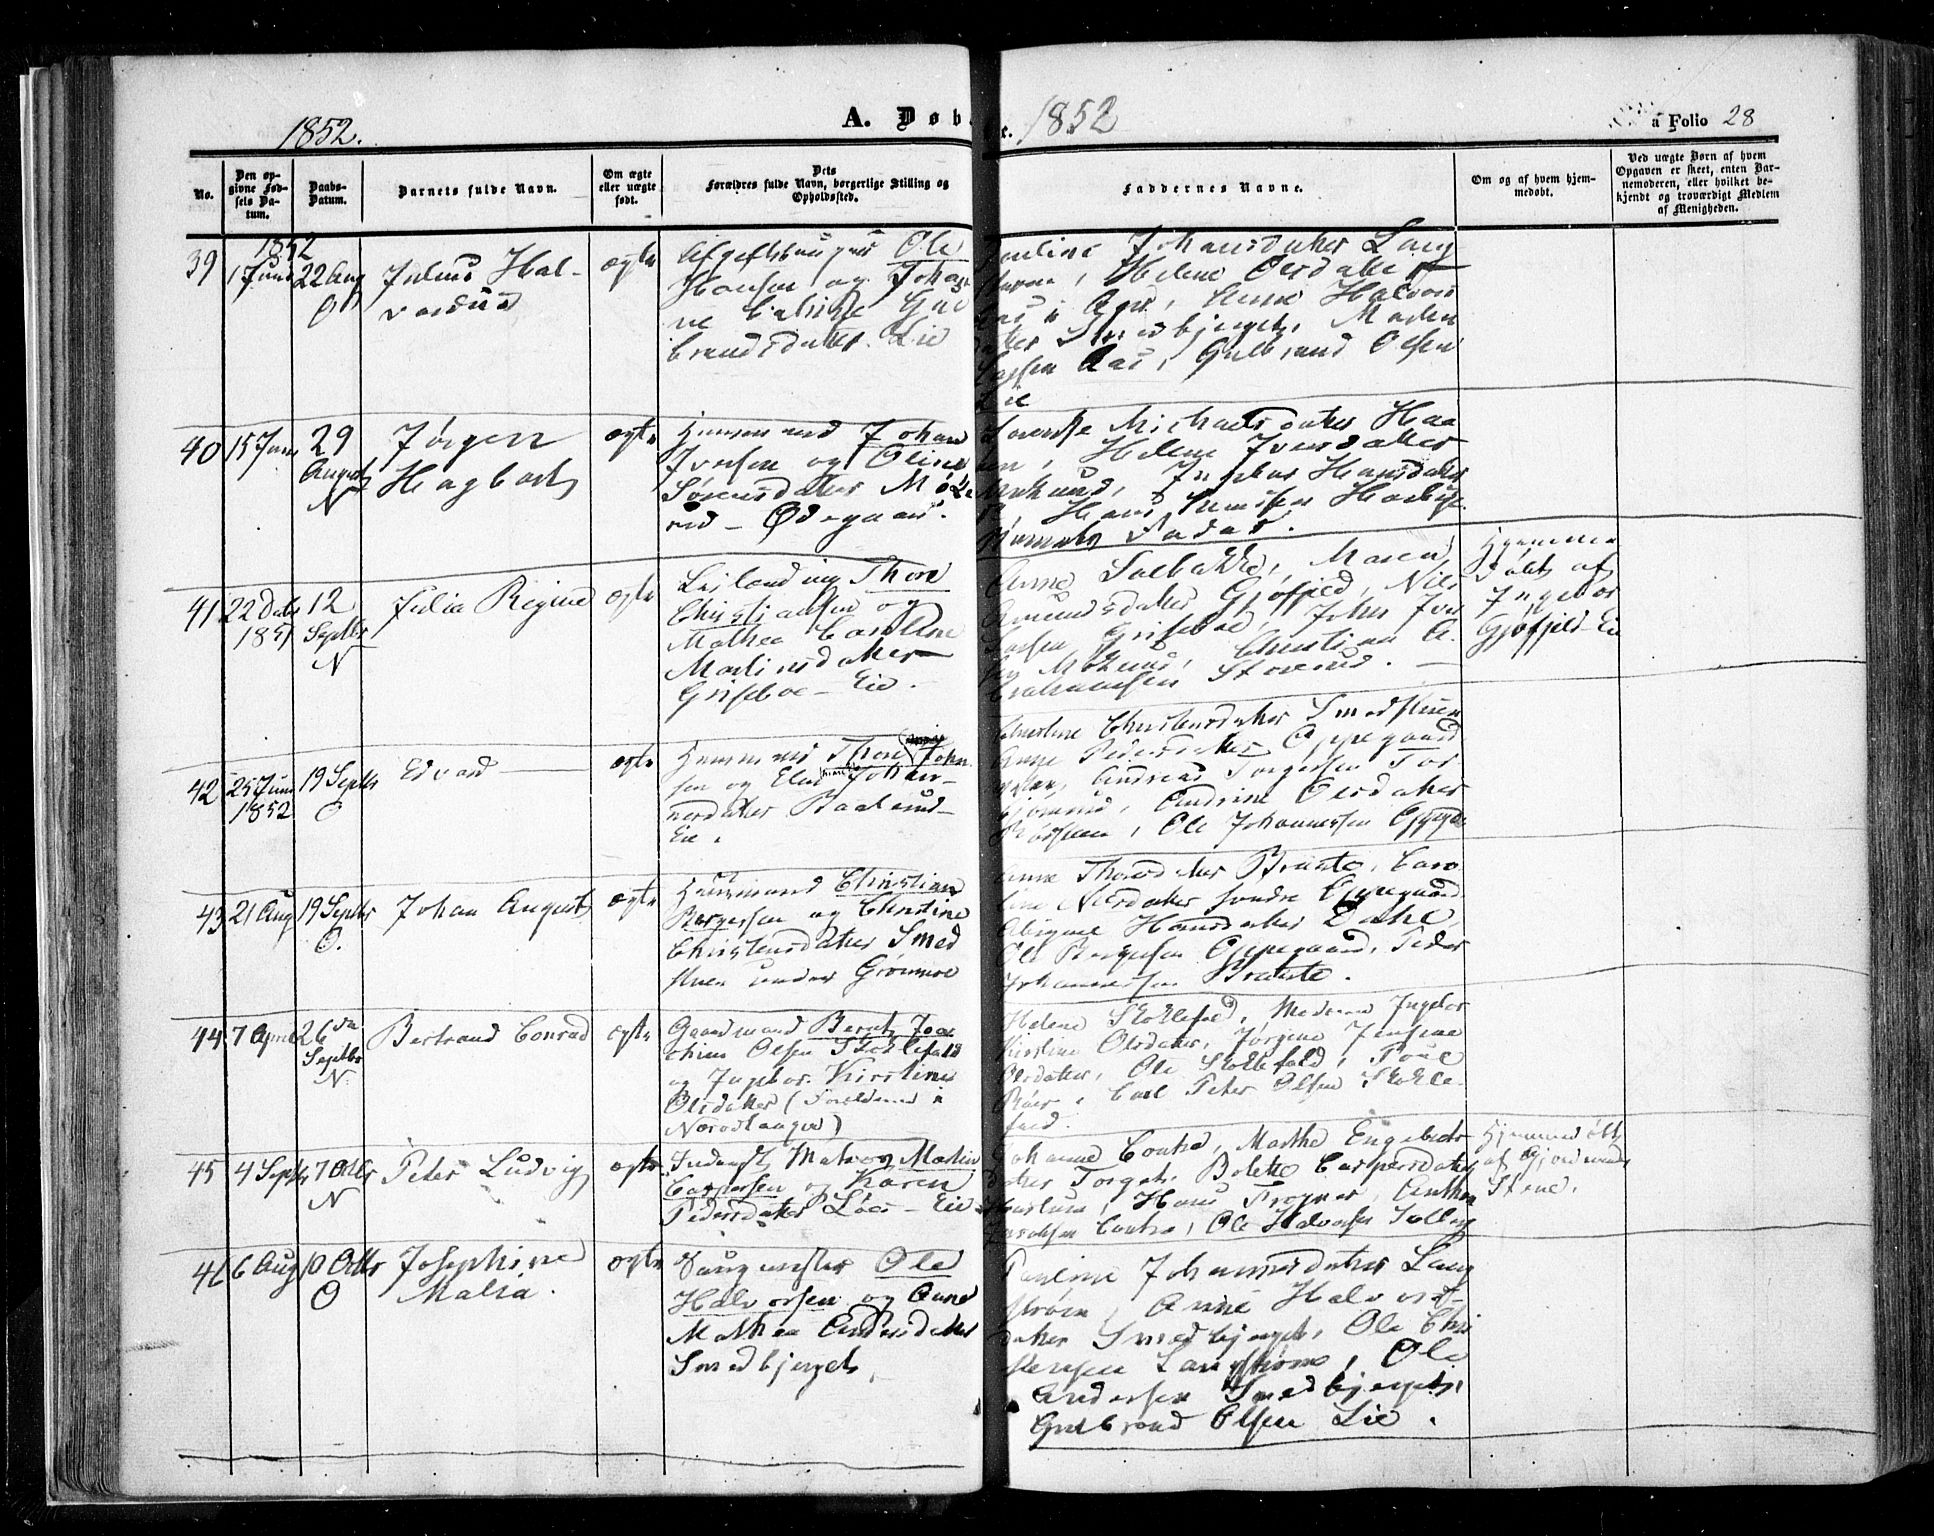 1852.
A. Døb
e. 1852
a Folio 28
No.
Den op-
givne Fød-
sels Da-
tum.
Daabs-
Datum.
Barnets fulde Navn.
Om ægte
eller uægte
født.
Dets
Forældres fulde Navn, borgerlige Stilling og
Opholdssted.
Faddernes Navne.
Om og af hvem hjem-
medøbt.
Ved uægte Børn af hvem
Opgaven er skeet, enten Bar-
nemoderen, eller hvilket be-
kjendt og troværdigt Medlem
af Menigheden.
39
1852
1 Juni
22 Aug
O
Julius Hal-
vardus
ægte
Ole
Hansen og Johan
ne Gul
brandsdatter Lie
Pauline Johansdatter Lang
Helene Olsdatter
Anne Halvors
datter Smedbjerget, Marten
Aas, Gulbrand Olsen
Lie
40
15 Juni
29
August
N
Jørgen
Hagbart
ægte
Huusmand Johan
Iversen og Oline
Sørensdatter Møke
rud - Ødegaard.
Michaelsdatter Haa
Helene Iversdatter
Ingebor Hansdatter
Hans
Barnets Fader.
41
22 Decbr
1851
12
Septbr
N
Julia Regine
ægte
Leilænding Thore
Christiansen og
Mathea Caroline
Martinsdatter
Griseboe - Eie.
Anne Solbakke, Maren
Amundsdatter Gjøfjeld, Nils
Larsen Griseboe, Johan Iver
sen Møkerud, Christian A
brahamsen Storerud.
Hjemme
døbt af
Ingebor
Gjøfjeld-Eie
42
25 Juni
1852
19 Septbr
O
Edvard
ægte
Huusmand Thore Johan
sen og Elen Johan-
nesdatter Baalerud-
Eie.
Christine Christensdatter Smedstuen
Anne Pedersdatter Oppegaard
Andreas Torgersen Tor
Andrine Olsdatter
Ole Johannessen
43
21 Aug
19 Septbr
O.
Johan August
ægte
Huusmand Christian
Børgersen og Christine
Christensdatter Smed
stuen under Grønmoe
Anne Thorsdatter Braate, Caro
line Nilsdatter søndre Oppegaard
Abigael Hansdatter Dahl
Ole Børgersen Oppegaard, Peder
Johannessen Braate.
44
7 April
26de
Septbr
N.
Bertrand Conrad
ægte
Gaardmand Bernt Joa
chim Olsen Stokkefald
og Ingebor Kirstine
Olsdatter (Forældrene i
Nærostanger)
Helene Stokkefald, Moderen Ingebor
Kirstine Olsdatter, Jørgine Jensine
Olsdatter, Ole Stokkefald, Poul
Røer, Carl Peter Olsen Stokke-
fald.
45
4 Septbr
7 Octbr
N
Peter Ludvig
ægte
Indenst Matros Martin
Caspersen og Karen
Pedersdatter Løes - Eie
Johanne Contra, Marthe Engebrets
datter Torget, Bolette Caspersdatter
Haslum, Hans Frogner, Anthon
Jacobsen Contra, Ole Halvorsen
Hjemmedøbt
af Gjordemoder
Stene.
46
6 Aug
10 Octbr
O
Josephine
Malia.
ægte
Saugmester Ole
Halvorsen og Anne
Mathea Andersdatter
Smedbjerget,
Pauline Johannesdatter Lang
strøm, Anne Halvors-
datter Smedbjerget, Ole Chri
stensen Langstrøm, Ole
Andersen Smedbjerget,
Gulbrand Olsen Lie.